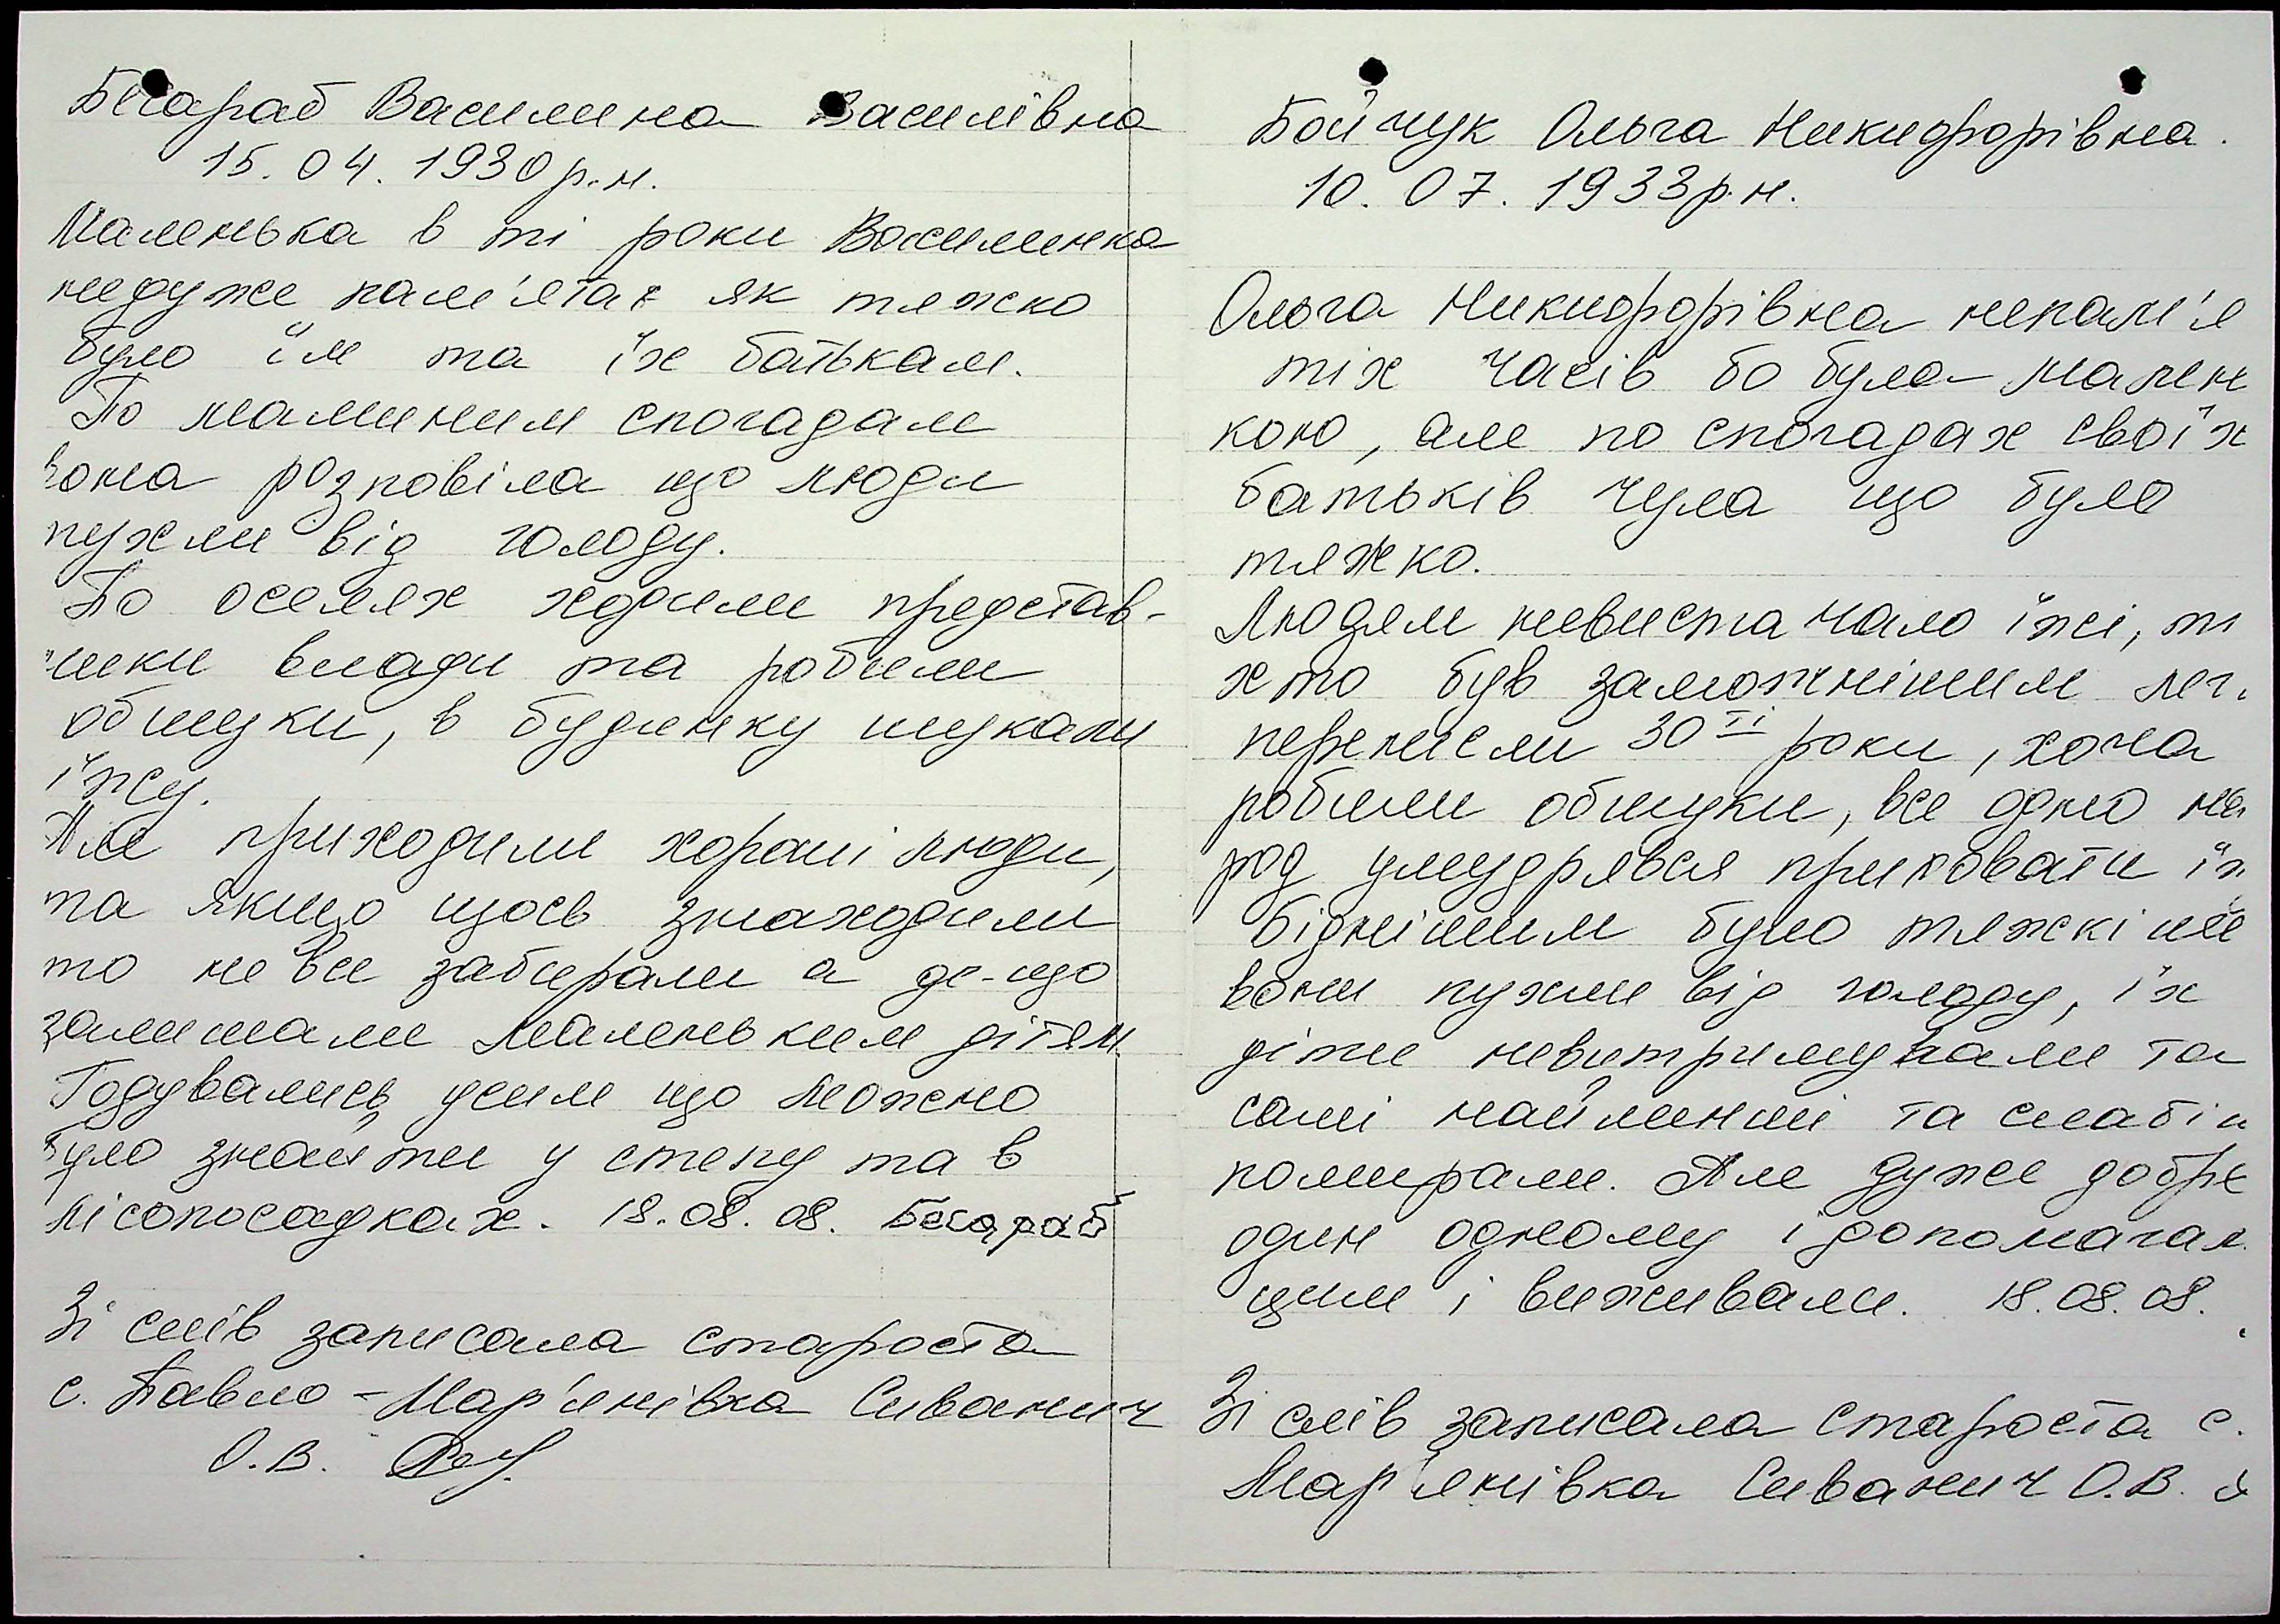 Бесараб Василина Василівна
15.04.1930р.н.
Маленька в ті роки Василинка
недуже пам'ятає як тяжко
було їм та їх батькам.
По маминим спогадам
вона розповіла що люди
пухли від голоду.
По оселях ходили представ-
ники влади та робили
обшуки, в будинку шукали
їжу.
Але приходили хороші люди,
та якщо щось знаходили
то не все забирали а де-що
залишали маленьким дітям.
Годувались усим що можно
було знайти у степу та в
лісопосадках. 18.08.08. Бесараб
Зі слів записала староста
с. Павло-Мар'янівка Сиванич
О.В.
Бойчук Ольга Никифорівна.
10.07.1933р.н.
Ольга Никифорівна непам'я
тіх часів бо була мален
кою, але по спогадах своїх
батьків чула що було
тяжко.
Людям невистачало їжі, ті
хто був заможнішим лег.
перенесли 30ті роки, хоча
робили обшуки, все одно на
род умудрявся приховати їж
біднішим було тяжкіше
вони пухли від голоду, їх
діти невитримували та
самі найменші та слабіш
помирали. Але дуже добре
один одному і допомагал
цим і виживали. 18.08.08.
Зі слів записала староста с.
Мар'янівка Сиванич О.В.